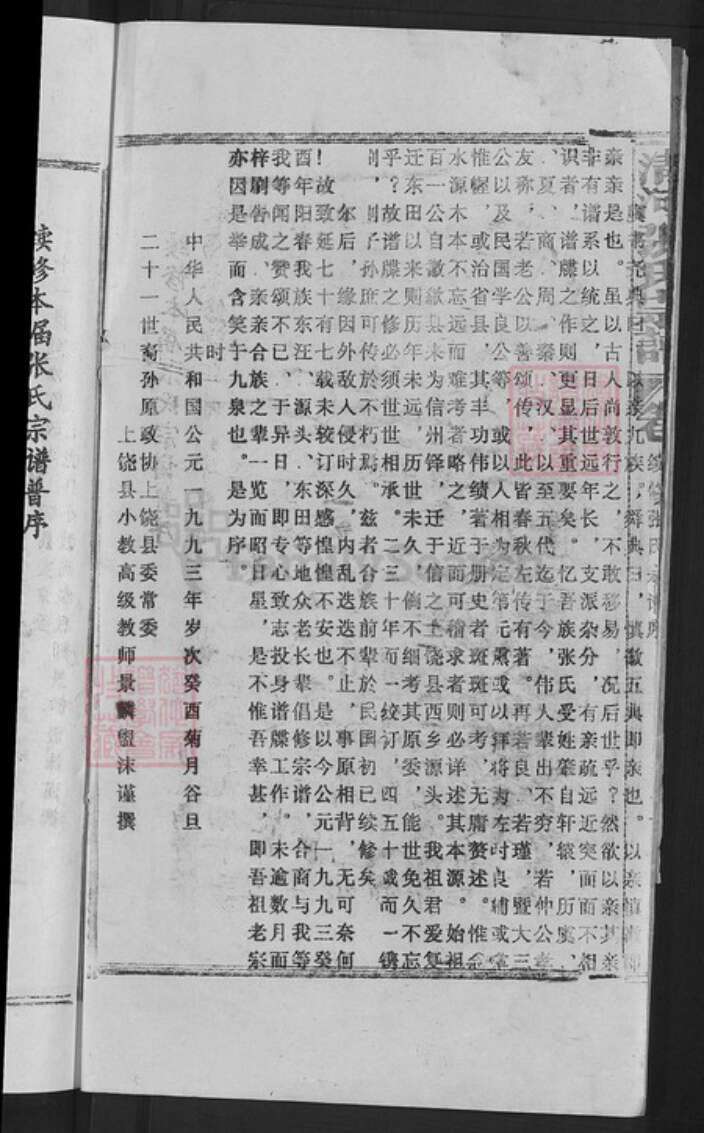 以亲九族。舜典曰，慎徽五典即亲也。以亲
亲亲是也。虽以古人尚敦行之，不敢移易，况后世乎？然欲以亲其亲
非有谱系以统之，日后世远年长，支派杂分，有亲疏远近突面而不相
识者，谱牒之作则更显其重要矣。忆吾族张氏受姓肇自轩辕，历虞、
夏、商、周、秦、汉、以至五代迄于今，伟人辈出不穷，若仲公孝
友称，若老公以善颂传，此皆春秋左传有著。再若良、若瑾，暨大三
公以及民国学良公等，或以人相为定第元勳或以拜将为左时良辅或掌
惟幄，或治省县，其丰功伟绩著于册史者斑斑可考，无庸赘述。惟念
水源木本不忘远而难考者略之，近而可稽求者则必详述其本源。始祖
百一公自徽歙县来为信州铎，迁于信之上饶县西乡源头。我祖君爱复
迁东田以来则历年未远，历世未久，倘不细考其原委，能世免久不忘
乎？故谱牒之修必须世世相承。二三十年而一绞订，四五十或而一镌
刻，则子孙庶可传於不朽焉。兹者合族前辈於民国初已续修矣
尔后，缘因外敌人侵时久，内乱迭迭不止，事原相背，无可奈何
！故致延七十有七载未较订深感惶惶不安也。是以今公元一九九三癸
酉年阳春我族东汪、源头、东田等地众老长辈倡修宗谱，合商与我等
我等闻之赞颂不已，于异日，即专心致志投身谱牒工作。未逾数月而
梓刷告成、亲亲合族之辈一览而昭日星，是不惟吾幸甚，即吾祖老宗
亦因是举而含笑于九泉也。是为序。
时
中华人民共和国公元一九九三年岁次癸酉菊月谷旦
二十一世裔孙原政协上饶县委常委
上饶县小教高级教师景麟盥沐谨撰
续修本届张氏宗谱普序